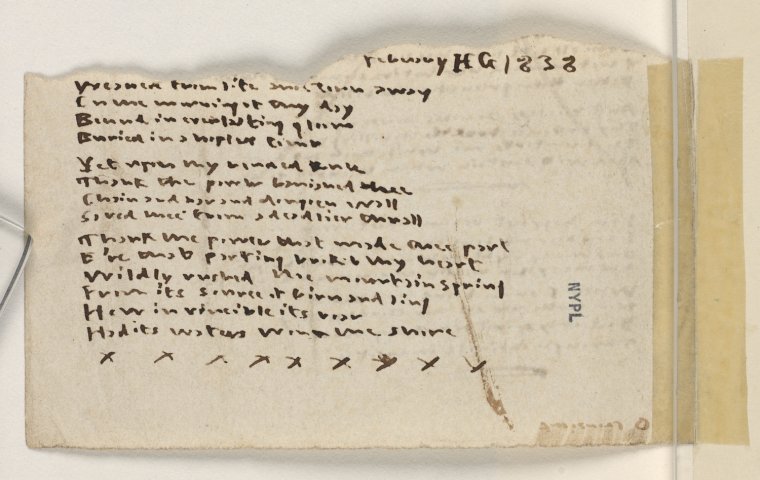 February HG 1838
Weaned from life and torn away
In the morning of thy day
Bound in everlasting gloom
Buried in a hapless tomb
Yet upon thy bended knee
Thank the power banished thee
Chain and bar and dungeon wall
Saved thee from a deadlier thrall
Thank the power that made thee part
E're that parting broke thy heart
Wildly rushed the mountain spring
From its source of fern and ling
How invincible its roar
Had its waters won the shore
x x x x x x x x x
NYPL